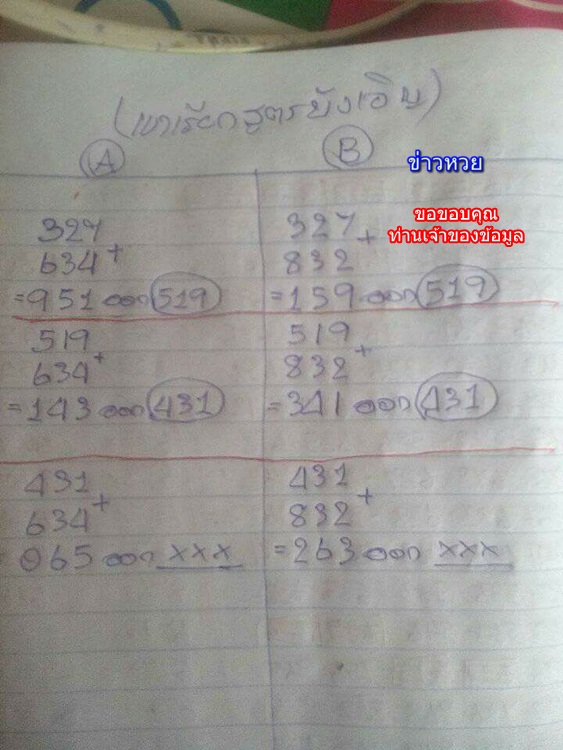 (เขาเรียกสูตรบังเอิญ)
A
B
ข่าวหวย
ขอขอบคุณ
ท่านเจ้าของข้อมูล
327
634 +
=951 ออก 519
327
832 +
=159 ออก 519
519
634 +
=143 ออก 431
519
832 +
=341 ออก 431
431
634 +
=065 ออก xxx
431
832 +
=263 ออก xxx